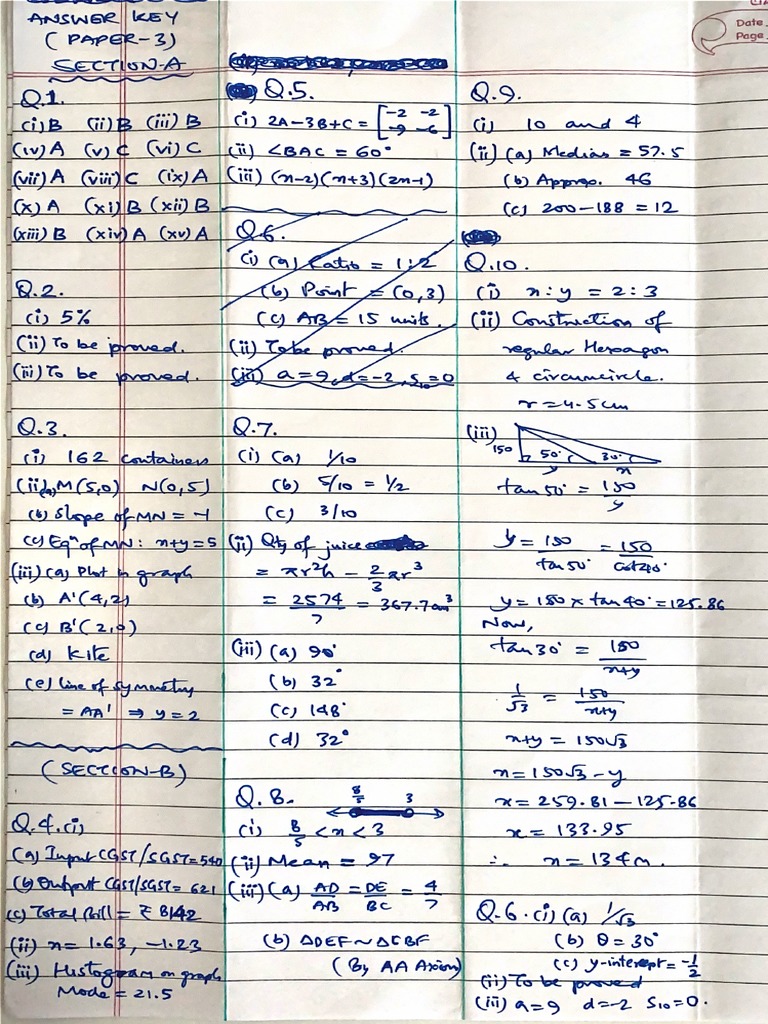 ANSWER KEY
( PAPER-3)
SECTION-A
Q.1.
(i) B (ii) B (iii) B
(iv) A (v) C (vi) C
(vii) A (viii) C (ix) A
(x) A (xi) B (xii) B
(xiii) B (xiv) A (xv) A
Q.2.
(i) 5%
(ii) To be proved.
(iii) To be proved.
Q.3.
(i) 162 containers
(ii)(a) M(5,0) N(0,5)
(b) Slope of MN = -1
(c) Eqⁿ of MN: x+y=5
(iii) (a) Plot in graph
(b) A'(4,2)
(c) B'(2,0)
(d) Kite
(e) line of symmetry
= AA' ⇒ y=2
(SECTION-B)
Q.4.(i)
(a) Input CGST/SGST=540
(b) Output CGST/SGST= 621
(c) Total Bill = ₹ 8142
(ii) x = 1.63, -1.23
(iii) Histogram on graph
Mode = 21.5
Q.5.
(i) 2A-3B+C = [-2 -2
-9 -6]
(ii) ∠BAC = 60°
(iii) (x-2)(x+3)(2x-1)
Q.6.
(i) (a) Ratio = 1:2
(b) Point = (0,3)
(c) AB = 15 units.
(ii) To be proved.
(iii) a=9, d=-2, S₁₀=0
Q.7.
(i) (a) 1/10
(b) 5/10 = 1/2
(c) 3/10
(ii) Qty of juice
= πr²h - 2/3 πr³
= 2574/7 = 367.7cm³
(iii) (a) 90°
(b) 32°
(c) 148°
(d) 32°
Q.8.
8/5 3
(i) 8/5 < x < 3
(ii) Mean = 97
(iii) (a) AD/AB = DE/BC = 4/7
(b) ΔDEF ~ ΔCBF
(By AA Axiom)
Q.9.
(i) 10 and 4
(ii) (a) Median = 57.5
(b) Approx. 46
(c) 200-188 = 12
Q.10.
(i) x:y = 2:3
(ii) Construction of
regular Hexagon
& circumcircle.
r = 4.5cm
(iii) 150 50° 30°
y x
tan 50° = 150/y
y = 150/tan 50° = 150/cot 40°
y = 150 x tan 40° = 125.86
Now,
tan 30° = 150/x+y
1/√3 = 150/x+y
x+y = 150√3
x = 150√3 - y
x = 259.81 - 125.86
x = 133.95
∴ x = 134m.
Q.6.(i) (a) 1/√3
(b) θ = 30°
(c) y-intercept = -1/2
(ii) To be proved
(iii) a=9 d=-2 S₁₀=0.
Date
Page